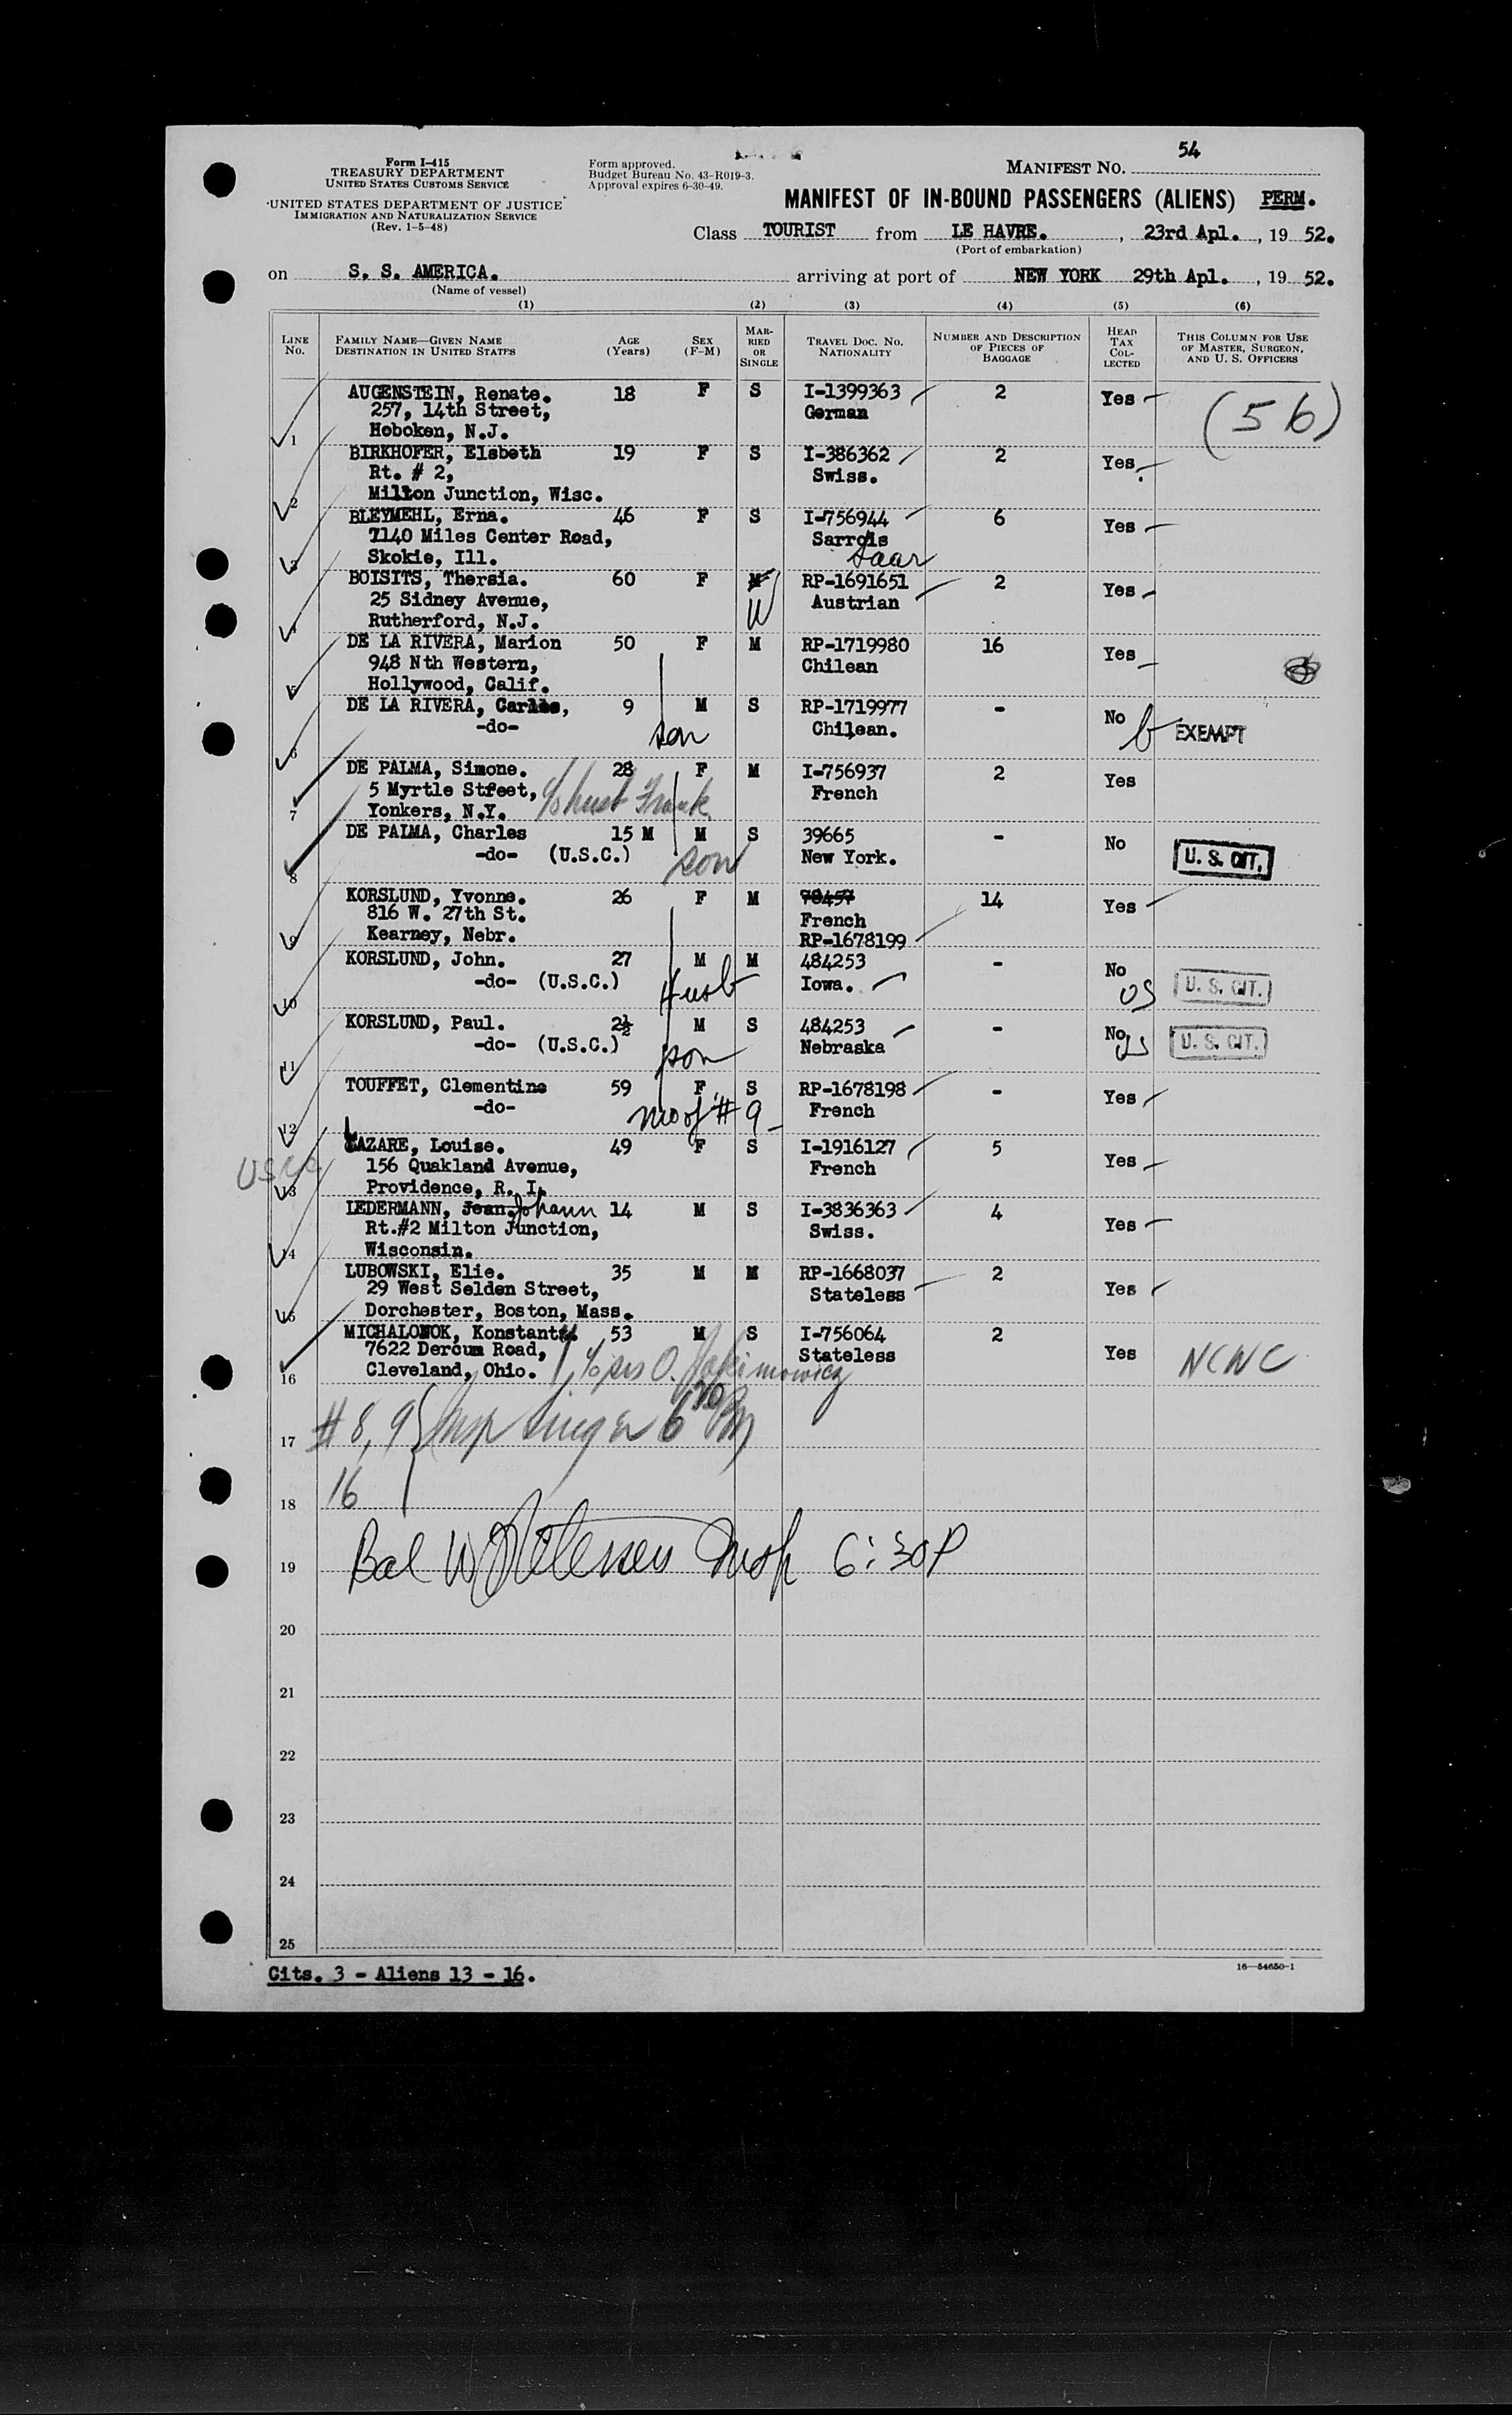 Form I-415
TREASURY DEPARTMENT
UNITED STATES CUSTOMS SERVICE
UNITED STATES DEPARTMENT OF JUSTICE
IMMIGRATION AND NATURALIZATION SERVICE
(Rev. 1-5-48)
Form approved.
Budget Bureau No. 43-R019-3.
Approval expires 6-30-49.
MANIFEST NO. 54
MANIFEST OF IN-BOUND PASSENGERS (ALIENS) PERM.
Class TOURIST from LE HAVRE. , 23rd Apl. , 19 52.
(Port of embarkation)
on S. S. AMERICA. arriving at port of NEW YORK 29th Apl. , 19 52.
(Name of vessel)
(1) (2) (3) (4) (5) (6)
LINE NO. FAMILY NAME—GIVEN NAME DESTINATION IN UNITED STATES AGE (Years) SEX (F-M) MARRIED OR SINGLE TRAVEL DOC. NO. NATIONALITY NUMBER AND DESCRIPTION OF PIECES OF BAGGAGE HEAD TAX COLLECTED THIS COLUMN FOR USE OF MASTER, SURGEON, AND U. S. OFFICERS
AUGENSTEIN, Renate. 18 F S I-1399363 2 Yes (56)
257, 14th Street, German
1 Hoboken, N.J.
BIRKHOFER, Elsbeth 19 F S I-386362 2 Yes.
Rt. # 2, Swiss.
2 Milton Junction, Wisc.
BLEYMEHL, Erna. 46 F S I-756944 6 Yes
7140 Miles Center Road, Sarrois
3 Skokie, Ill. Saar
BOISITS, Thersia. 60 F M RP-1691651 2 Yes
25 Sidney Avenue, W Austrian
4 Rutherford, N.J.
DE LA RIVERA, Marion 50 F M RP-1719980 16 Yes
948 Nth Western, Chilean
5 Hollywood, Calif.
DE LA RIVERA, Carlos, 9 M S RP-1719977 - No
-do- son Chilean. EXEMPT
6
DE PALMA, Simone. 28 F M I-756937 2 Yes
5 Myrtle Street, c/o husb Frank French
7 Yonkers, N.Y.
DE PALMA, Charles 15 M M S 39665 - No
-do- (U.S.C.) son New York. U. S. CIT.
8
KORSLUND, Yvonne. 26 F M 78457 14 Yes
816 W. 27th St. French
9 Kearney, Nebr. RP-1678199
KORSLUND, John. 27 M M 484253 - No
-do- (U.S.C.) Husb Iowa. US U. S. CIT.
10
KORSLUND, Paul. 2½ M S 484253 - No
-do- (U.S.C.) son Nebraska US U. S. CIT.
11
TOUFFET, Clementine 59 F S RP-1678198 - Yes
-do- mo of # 9 French
12
LAZARE, Louise. 49 F S I-1916127 5 Yes
156 Quakland Avenue, French
13 Providence, R. I.
LEDERMANN, Jean. Johann 14 M S I-3836363 4 Yes
Rt.#2 Milton Junction, Swiss.
14 Wisconsin.
LUBOWSKI, Elie. 35 M M RP-1668037 2 Yes
29 West Selden Street, Stateless
15 Dorchester, Boston, Mass.
MICHALONOK, Konstanty 53 M S I-756064 2 Yes
7622 Dercum Road, Stateless NCWC
16 Cleveland, Ohio. c/o sis O. Jakimowicz
17 # 8, 9 Insp 6 30 PM
18 16
19 Bal W Petersen Insp 6:30P
20
21
22
23
24
25
Cits. 3 - Aliens 13 - 16.
16—54650-1